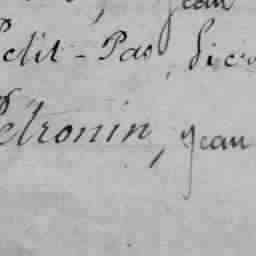 Jean
Petit-Pas,
Petronin, Jean